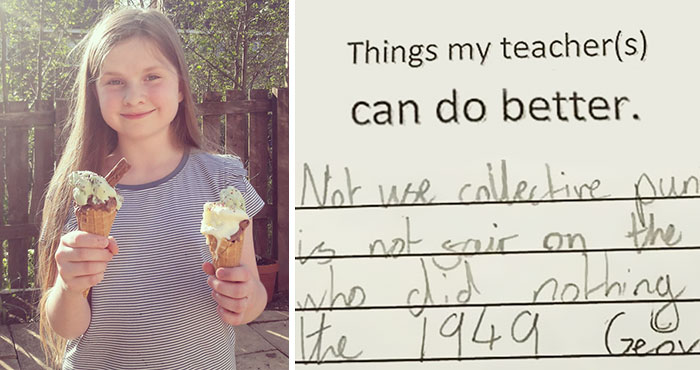 Things my teacher(s)
can do better.
Not use collective pun
is not fair on the
who did nothing
the 1949 Genv